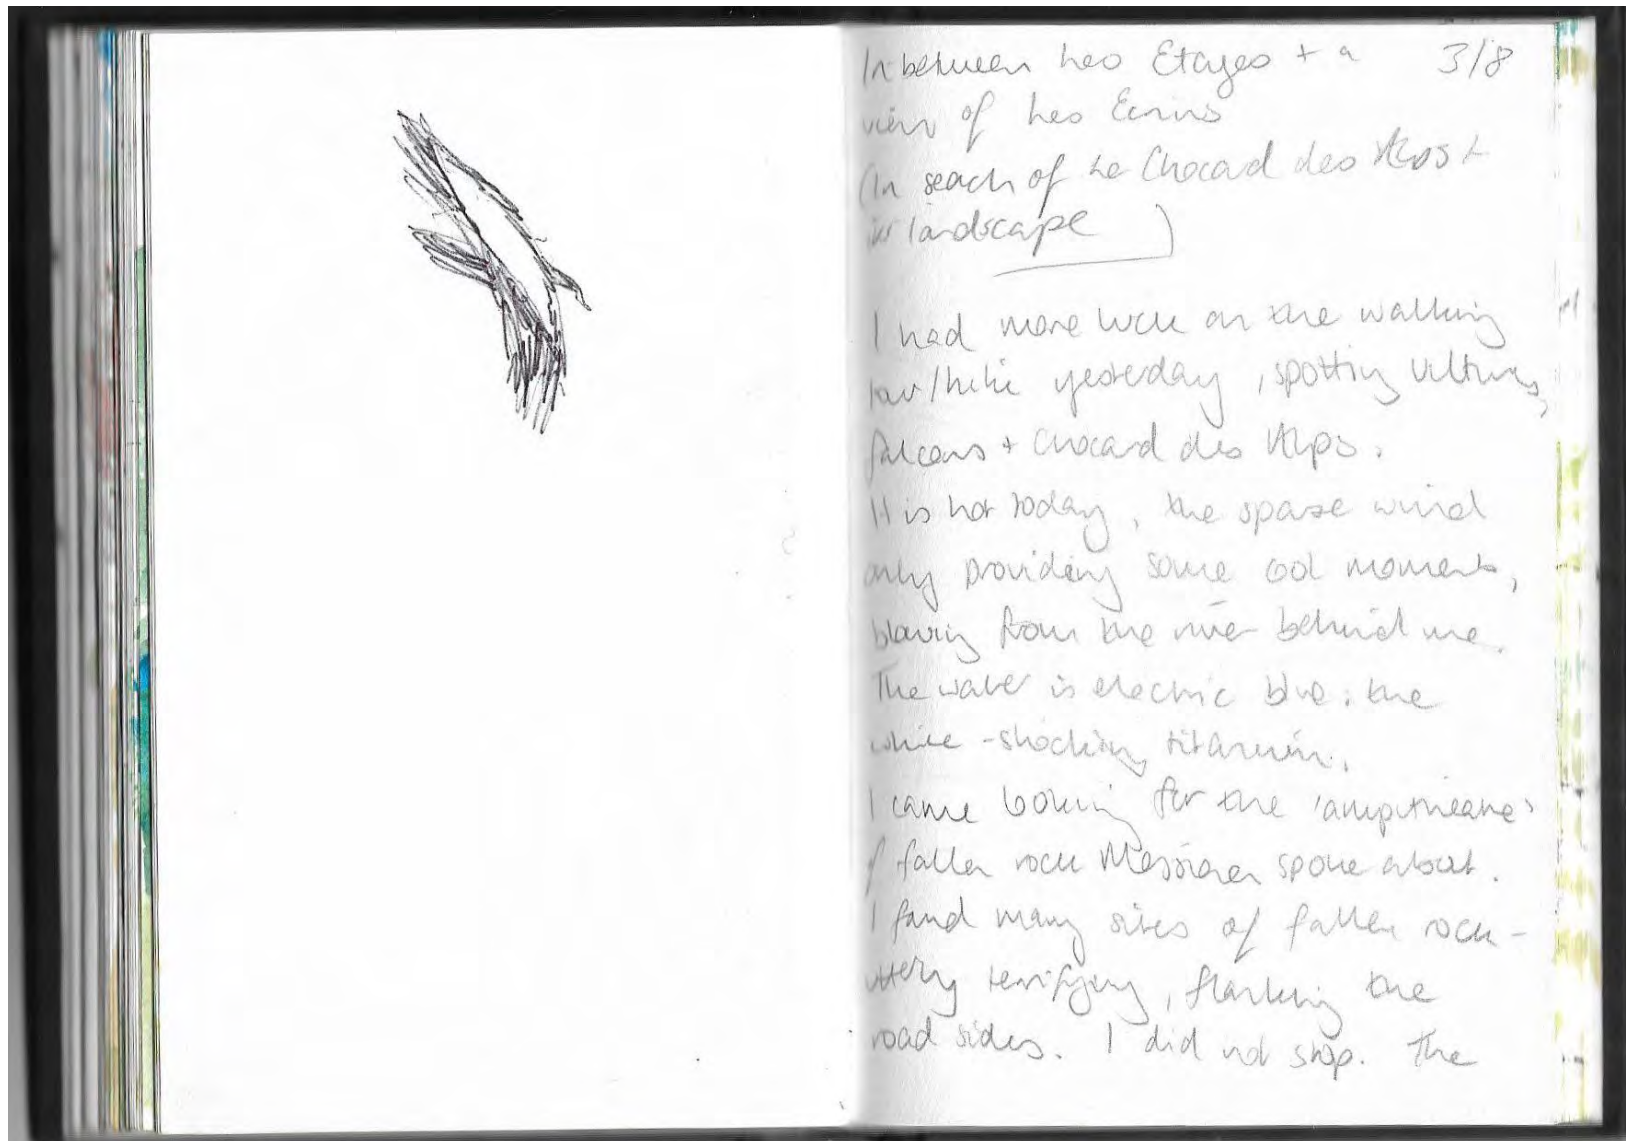 In between Les Etages + a 3/8
view of Les Ecrins
(In seach of the Chocard des Alps +
its landscape)
I had more luck on the walking
tour/hike yesterday, spotting vultures,
falcons + Chocard des Alps.
It is hot today, the sparse wind
only providing some cool moments,
blowing from the river behind me.
The water is electric blue; the
white - shocking titanium.
I came looking for the 'ampitheatre'
of fallen rock spoke about.
I found many sites of fallen rock -
utterly terrifying, flanking the
road sides. I did not stop. The